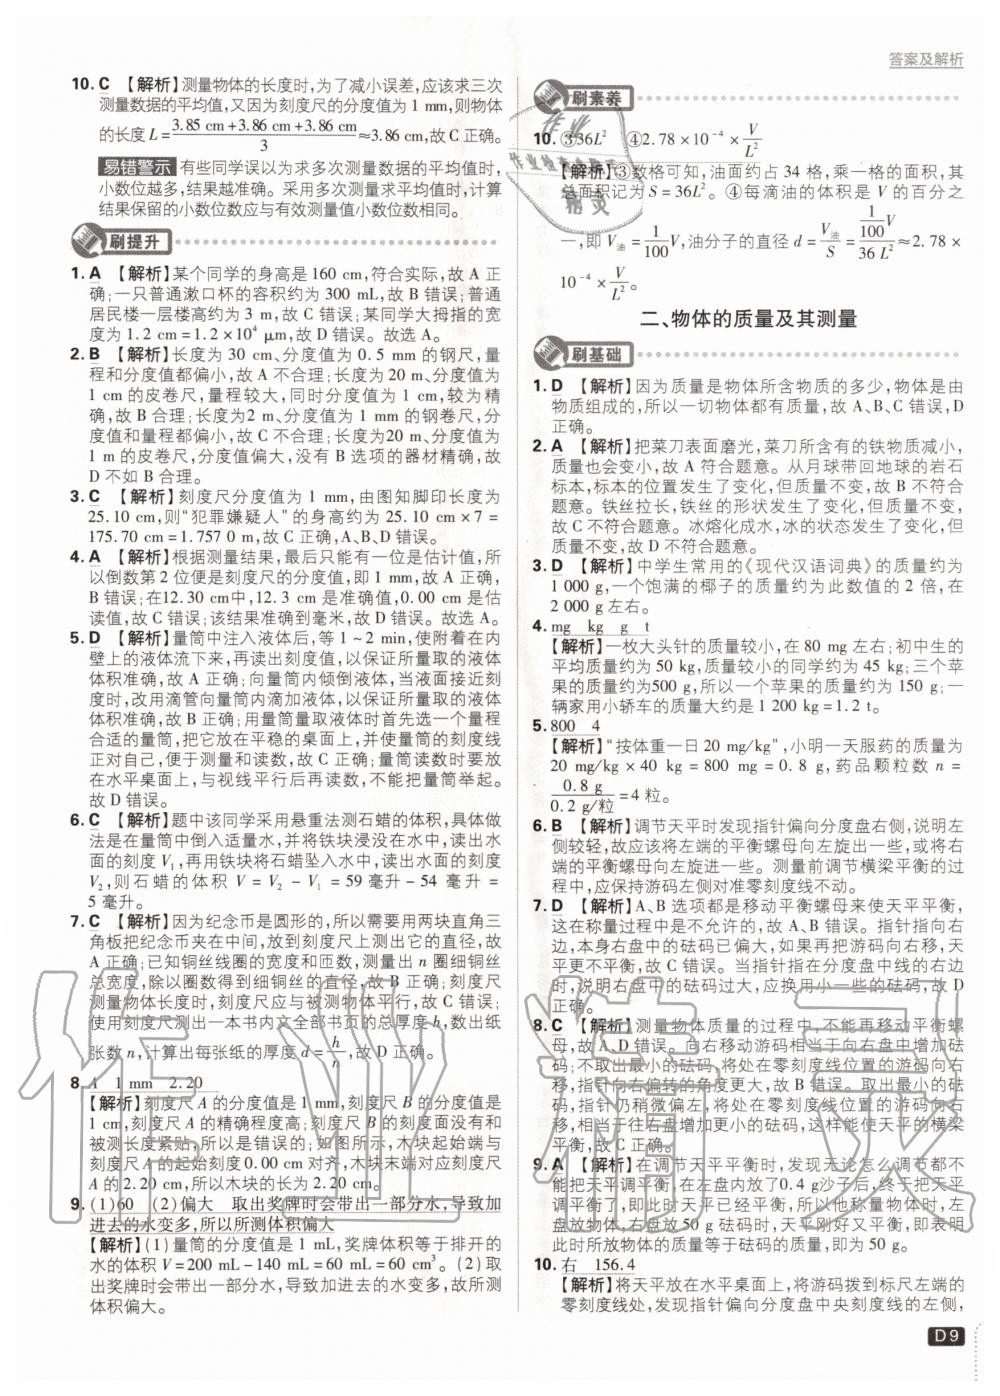 答案及解析
10. C 【解析】测量物体的长度时,为了减小误差,应该求三次
测量数据的平均值,又因为刻度尺的分度值为 1 mm,则物体
的长度 L = (3.85 cm + 3.86 cm + 3.86 cm)/3 ≈ 3.86 cm,故 C 正确。
易错警示 有些同学误以为求多次测量数据的平均值时,
小数位越多,结果越准确。采用多次测量求平均值时,计算
结果保留的小数位数应与有效测量值小数位数相同。
刷提升
1. A 【解析】某个同学的身高是 160 cm,符合实际,故 A 正
确;一只普通漱口杯的容积约为 300 mL,故 B 错误;普通
居民楼一层楼高约为 3 m,故 C 错误;某同学大拇指的宽
度为 1.2 cm = 1.2×10⁴ μm,故 D 错误。故选 A。
2. B 【解析】长度为 30 cm、分度值为 0.5 mm 的钢尺,量
程和分度值都偏小,故 A 不合理;长度为 20 m、分度值为
1 cm 的皮卷尺,量程较大,同时分度值为 1 cm,较为精
确,故 B 合理;长度为2 m、分度值为 1 mm 的钢卷尺,分
度值和量程都偏小,故 C 不合理;长度为20 m、分度值为
1 m 的皮卷尺,分度值偏大,没有 B 选项的器材精确,故
D 不如 B 合理。
3. C 【解析】刻度尺分度值为 1 mm,由图知脚印长度为
25.10 cm,则“犯罪嫌疑人”的身高约为 25.10 cm×7 =
175.70 cm = 1.757 0 m,故 C 正确,A、B、D 错误。
4. A 【解析】根据测量结果,最后只能有一位是估计值,所
以倒数第 2 位便是刻度尺的分度值,即 1 mm,故 A 正确,
B 错误;在12.30 cm中,12.3 cm 是准确值,0.00 cm 是估
读值,故 C 错误;该结果准确到毫米,故 D 错误。故选 A。
5. D 【解析】量筒中注入液体后,等 1~2 min,使附着在内
壁上的液体流下来,再读出刻度值,以保证所量取的液体
体积准确,故 A 正确;向量筒内倾倒液体,当液面接近刻
度时,改用滴管向量筒内滴加液体,以保证所量取的液体
体积准确,故 B 正确;用量筒量取液体时首先选一个量程
合适的量筒,把它放在平稳的桌面上,并使量筒的刻度线
正对自己,便于测量和读数,故 C 正确;量筒读数时要放
在水平桌面上,与视线平行后再读数,不能把量筒举起。
故 D 错误。
6. C 【解析】题中该同学采用悬重法测石蜡的体积,具体做
法是在量筒中倒入适量水,并将铁块浸没在水中,读出水
面的刻度 V₁,再用铁块将石蜡坠入水中,读出水面的刻度
V₂,则石蜡的体积 V = V₂ − V₁ = 59 毫升 − 54 毫升 =
5 毫升。
7. C 【解析】因为纪念币是圆形的,所以需要用两块直角三
角板把纪念币夹在中间,放到刻度尺上测出它的直径,故
A 正确;已知铜丝线圈的宽度和匝数,测量出 n 圈细铜丝
总宽度,除以圈数得到细铜丝的直径,故 B 正确;刻度尺
测量物体长度时,刻度尺应与被测物体平行,故 C 错误;
使用刻度尺测出一本书内文全部书页的总厚度 h,数出纸
张数 n,计算出每张纸的厚度 d = h/n,故 D 正确。
8. A 1 mm 2.20
【解析】刻度尺 A 的分度值是 1 mm,刻度尺 B 的分度值是
1 cm,刻度尺 A 的精确程度高;刻度尺 B 的刻度面没有和
被测长度紧贴,所以是错误的;如图所示,木块起始端与
刻度尺 A 的起始刻度 0.00 cm 对齐,木块末端对应刻度尺
A 的 2.20 cm,所以木块的长为 2.20 cm。
9. (1)60 (2)偏大 取出奖牌时会带出一部分水,导致加
进去的水变多,所以所测体积偏大
【解析】(1)量筒的分度值是 1 mL,奖牌体积等于排开的
水的体积 V = 200 mL − 140 mL = 60 mL = 60 cm³。(2)取
出奖牌时会带出一部分水,导致加进去的水变多,故所测
体积偏大。
刷素养
10. ③36L² ④2.78×10⁻⁴×V/L²
【解析】③数格可知,油面约占 34 格,乘一格的面积,其
总面积记为 S = 36L²。④每滴油的体积是 V 的百分之
一,即 V油 = 1/100 V,油分子的直径 d = V油/S = (1/100 V)/(36 L²) ≈ 2.78 ×
10⁻⁴×V/L²。
二、物体的质量及其测量
刷基础
1. D 【解析】因为质量是物体所含物质的多少,物体是由
物质组成的,所以一切物体都有质量,故 A、B、C 错误,D
正确。
2. A 【解析】把菜刀表面磨光,菜刀所含有的铁物质减小,
质量也会变小,故 A 符合题意。从月球带回地球的岩石
标本,标本的位置发生了变化,但质量不变,故 B 不符合
题意。铁丝拉长,铁丝的形状发生了变化,但质量不变,
故 C 不符合题意。冰熔化成水,冰的状态发生了变化,但
质量不变,故 D 不符合题意。
3. D 【解析】中学生常用的《现代汉语词典》的质量约为
1 000 g,一个饱满的椰子的质量约为此数值的 2 倍,在
2 000 g左右。
4. mg kg g t
【解析】一枚大头针的质量较小,在 80 mg左右;初中生的
平均质量约为 50 kg,质量较小的同学约为 45 kg;三个苹
果的质量约为500 g,所以一个苹果的质量约为 150 g;一
辆家用小轿车的质量大约是 1 200 kg = 1.2 t。
5. 800 4
【解析】“按体重一日 20 mg/kg”,小明一天服药的质量为
20 mg/kg × 40 kg = 800 mg = 0.8 g,药品颗粒数 n =
0.8 g/(0.2 g/粒) = 4 粒。
6. B 【解析】调节天平时发现指针偏向分度盘右侧,说明左
侧较轻,故应该将左端的平衡螺母向左旋出一些,或将右
端的平衡螺母向左旋进一些。测量前调节横梁平衡的过
程中,应保持游码左侧对准零刻度线不动。
7. D 【解析】A、B 选项都是移动平衡螺母来使天平平衡,
这在称量过程中是不允许的,故 A、B 错误。指针指向右
边,本身右盘中的砝码已偏大,如果再把游码向右移,天
平更不平衡,故 C 错误。当指针指在分度盘中线的右边
时,说明右盘中的砝码过大,应换用小一些的砝码,故 D
正确。
8. C 【解析】测量物体质量的过程中,不能再移动平衡螺
母,故 A、D 错误。向右移动游码相当于向右盘中增加砝
码,不取出最小的砝码,将处在零刻度线位置的游码向右
移,指针向右偏转的角度更大,故 B 错误。取出最小的砝
码,指针仍稍微偏左,将处在零刻度线位置的游码向右
移,相当于往右盘增加更小的砝码,这样能使天平的横梁
平衡,故 C 正确。
9. A 【解析】在调节天平平衡时,发现无论怎么调节都不
能把天平调平衡,在左盘内放了0.4 g沙子后,终于把天平
调平衡了,即此时天平已经平衡,所以他称量物体时,左
盘放物体,右盘放 50 g 砝码时,天平刚好又平衡,即表明
此时所放物体的质量等于砝码的质量,即为 50 g。
10. 右 156.4
【解析】将天平放在水平桌面上,将游码拨到标尺左端的
零刻度线处,发现指针偏向分度盘中央刻度线的左侧,
D9
作业精灵